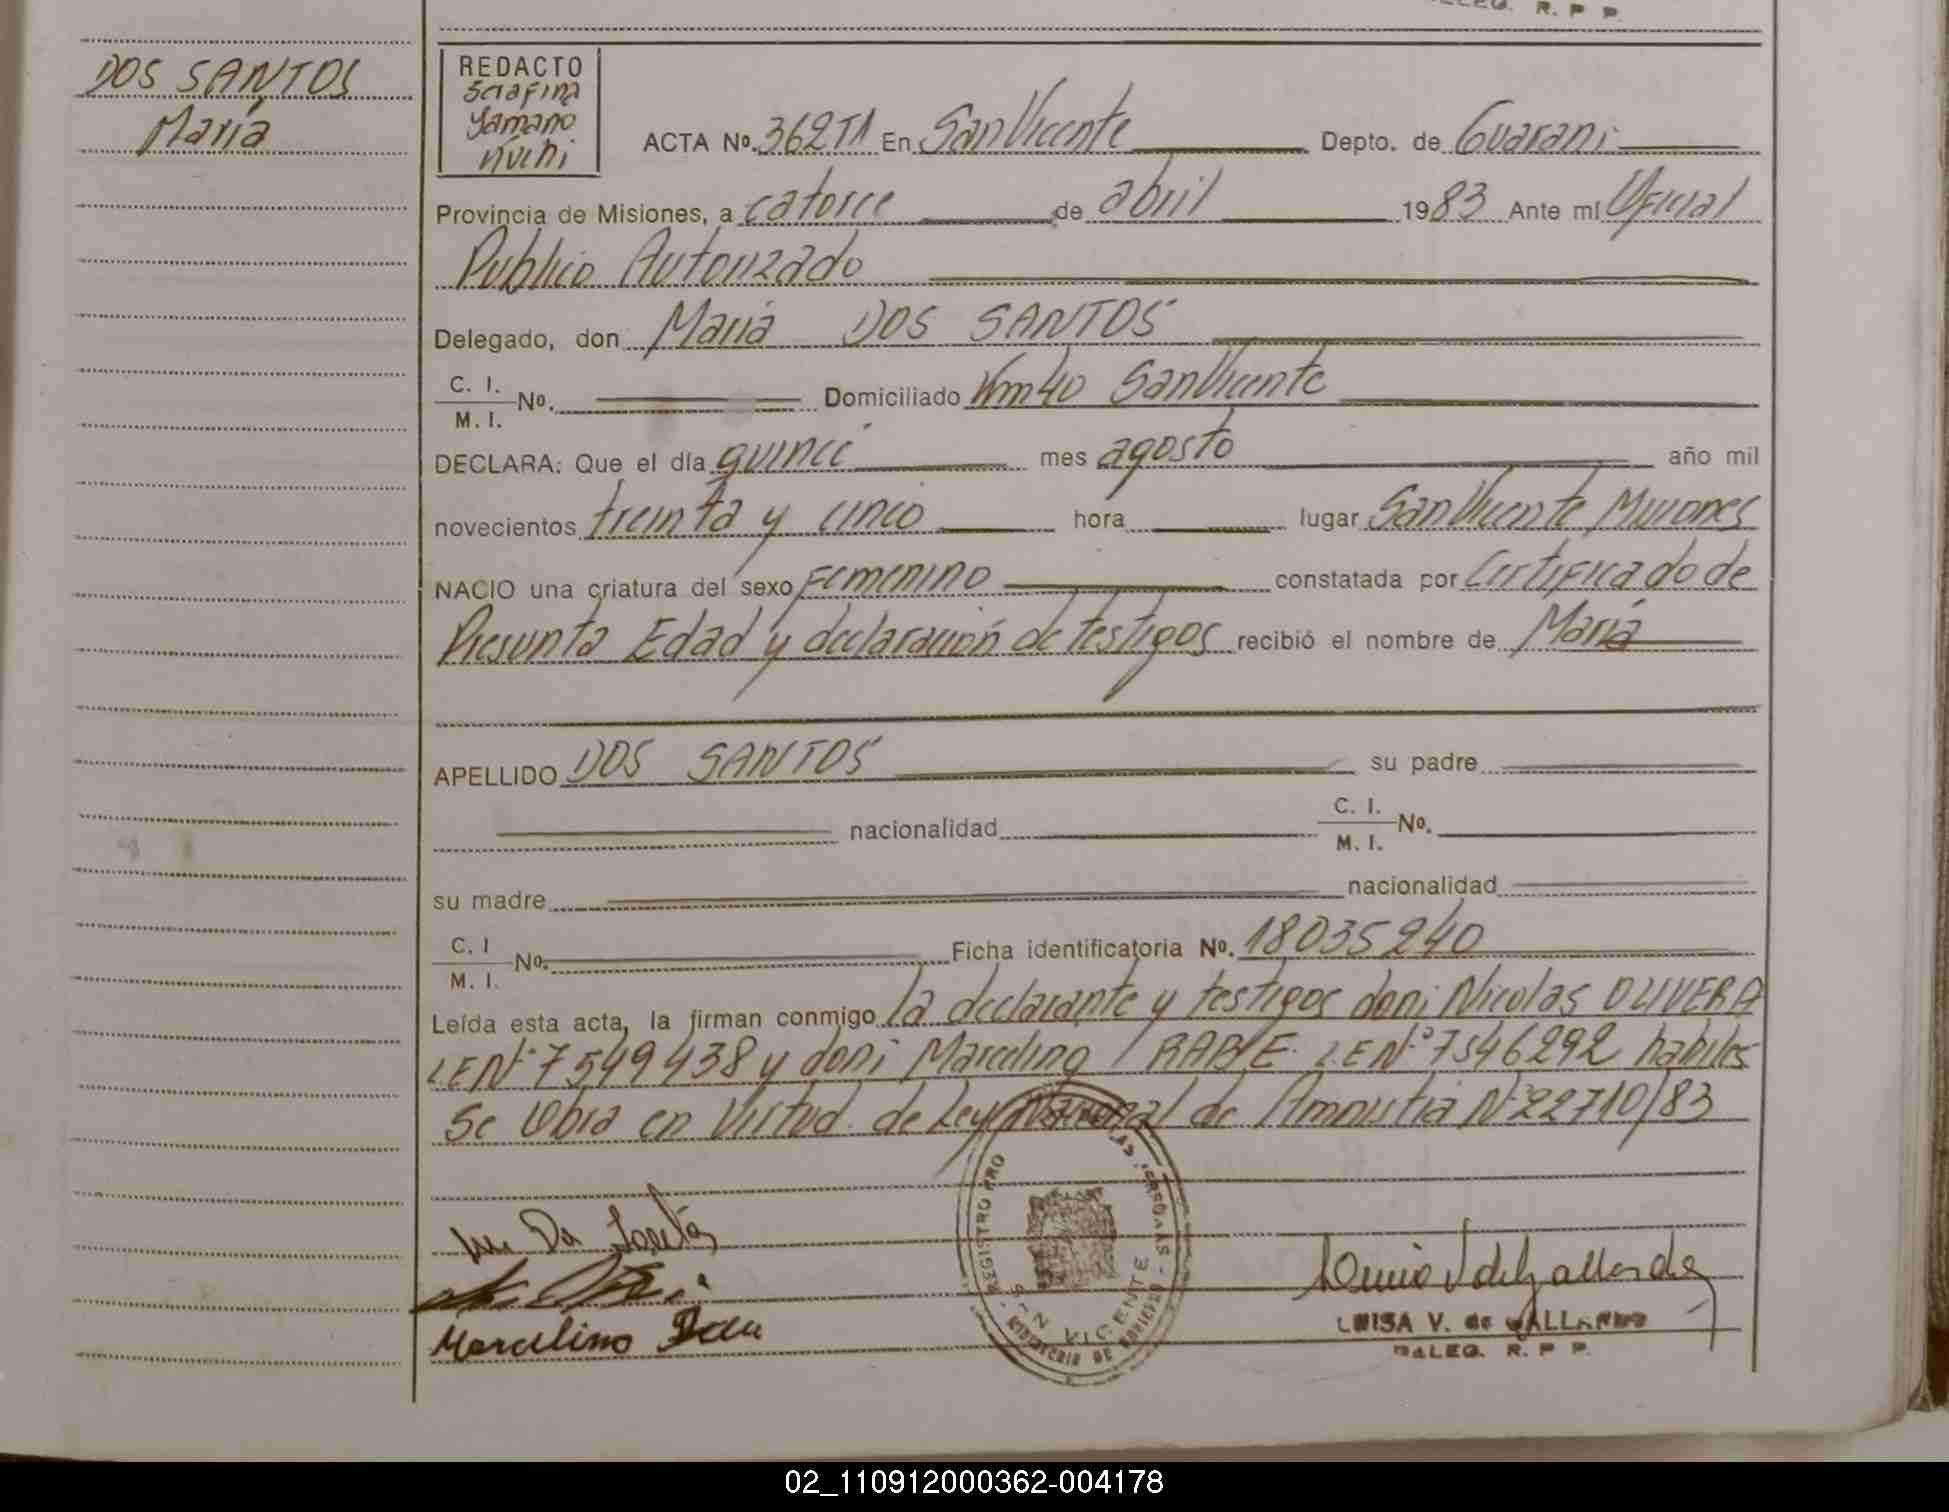 DALEG. R. P P.
DOS SANTOS
María
REDACTO
Serafina
Yamano
Kuchi
ACTA Nº. 362 T1 En San Vicente Depto. de Guaraní
Provincia de Misiones, a catorce de abril 1983 Ante mí Oficial
Publico Autorizado
Delegado, don María DOS SANTOS
C. I.
M. I. Nº. Domiciliado Km 40 San Vicente
DECLARA: Que el día quince mes agosto año mil
novecientos treinta y cinco hora lugar San Vicente, Misiones
NACIO una criatura del sexo Femenino constatada por Certificado de
Presunta Edad y declaración de testigos recibió el nombre de María
APELLIDO DOS SANTOS su padre
nacionalidad C. I.
M. I. Nº.
su madre nacionalidad
C. I
M. I. Nº. Ficha identificatoria Nº. 18035240
Leída esta acta, la firman conmigo la declarante y testigos don: Nicolas OLIVERA
L.E Nº 7549438 y don: Marcelino RABE L.E Nº 7546292 habiles
Se Obra en Virtud de Ley Nacional de Amnistia Nº 22710/83
REGISTRO PRO DE LAS PERSONAS
SAN VICENTE
MINISTERIO DE GOBIERNO
Marcelino
LUISA V. de GALLARDO
DALEG. R. P P.
02_110912000362-004178